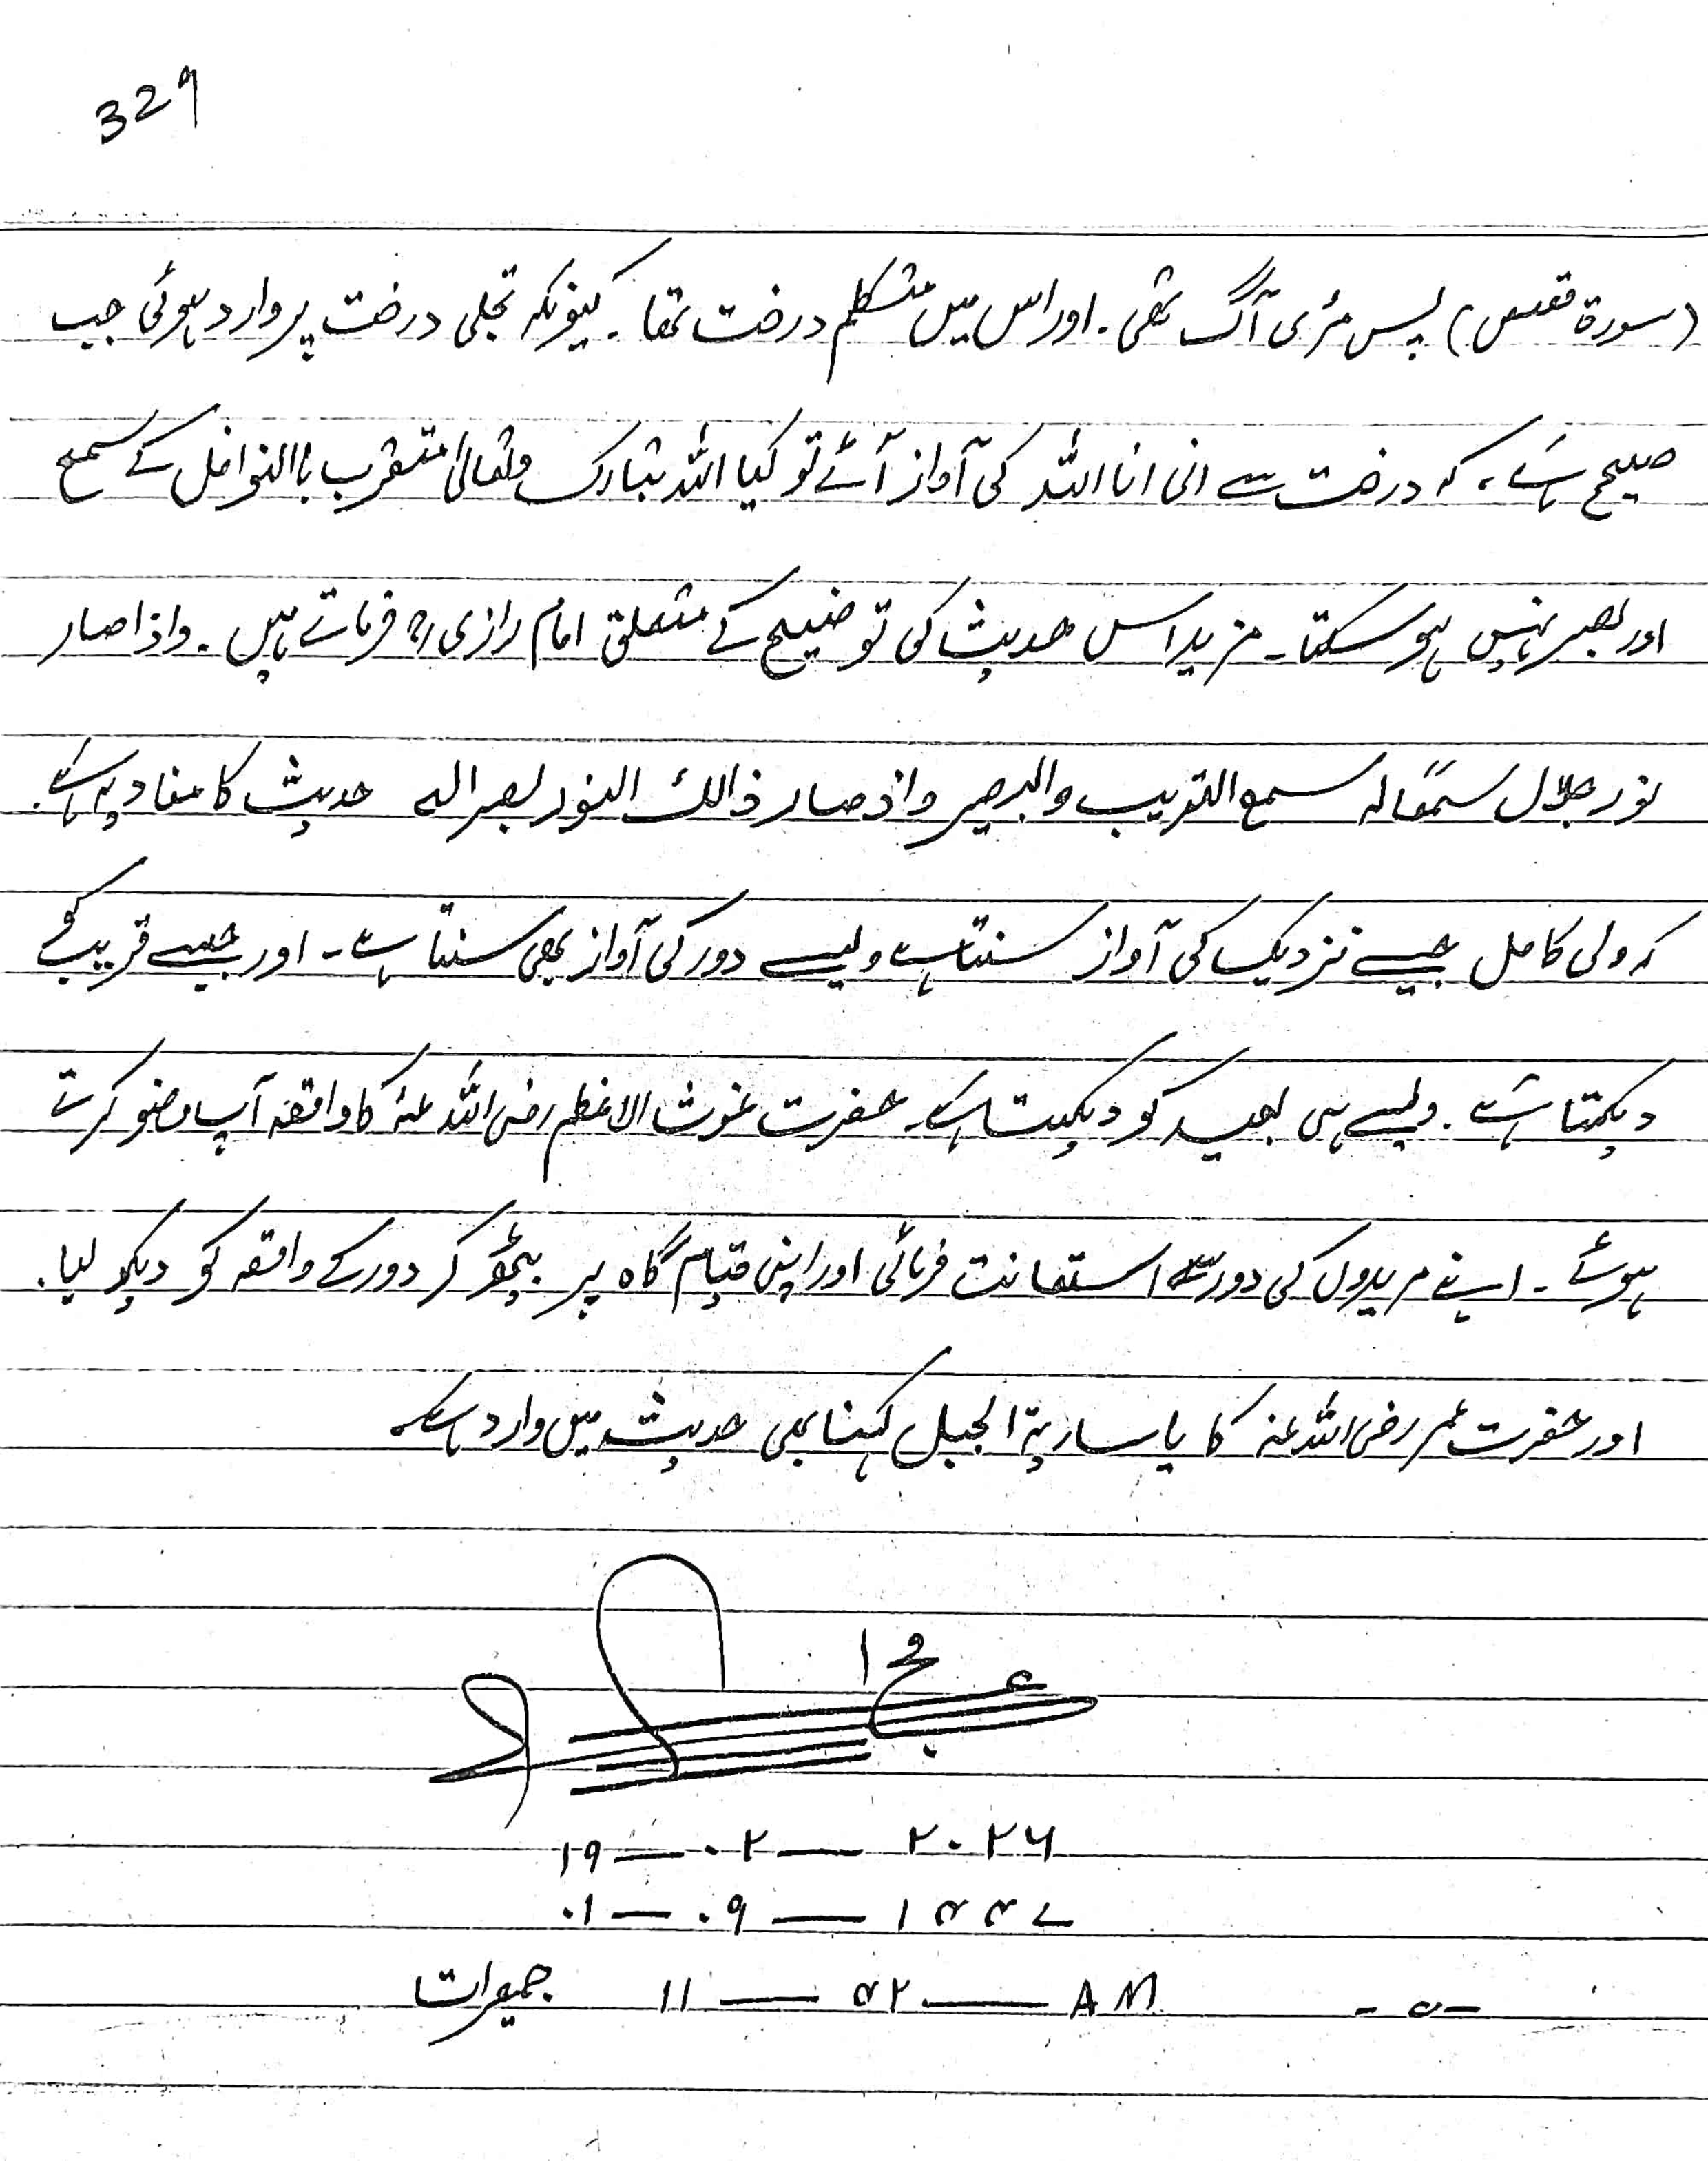 329
(سورۃ قصص) پس مرئی آگ تھی۔ اور اس میں متکلم درخت تھا۔ کیونکہ تجلی درخت پر وارد ہوئی جب
صیحح ہے، کہ درخت سے انی انا اللہ کی آواز آئے تو کیا اللہ تبارک وتعالیٰ متقرب باالنوافل کے سمع
اور بصر نہیں ہو سکتا۔ مزید اس حدیث کی توضیح کے متعلق امام رازی رح فرماتے ہیں۔ واذا صار
نور جلال سمعًا لہ سمع القریب والبصیر واذ صار ذالک النور بصر الہ حدیث کا مفاد یہ ہے۔
کہ ولی کامل جیسے نزدیک کی آواز سنتا ہے ویسے دور کی آواز بھی سنتا ہے۔ اور جیسے قریب کو
دیکھتا ہے۔ ویسے ہی بعید کو دیکھتا ہے۔ حضرت غوث الاعظم رضی اللہ عنہ کا واقعہ آپ وضو کرتے
ہوئے۔ اپنے مریدوں کی دور سے استعانت فرمائی اور اپنی قیام گاہ پر بیٹھ کر دور کے واقعہ کو دیکھ لیا۔
اور حضرت عمر رضی اللہ عنہ کا یا ساریۃ الجبل کہنا بھی حدیث میں وارد ہے۔
۱۹ — ۰۲ — ۲۰۲۶
۰۱ — ۰۹ — ۱۴۴۷
جمعرات ۱۱ — ۴۲ — AM